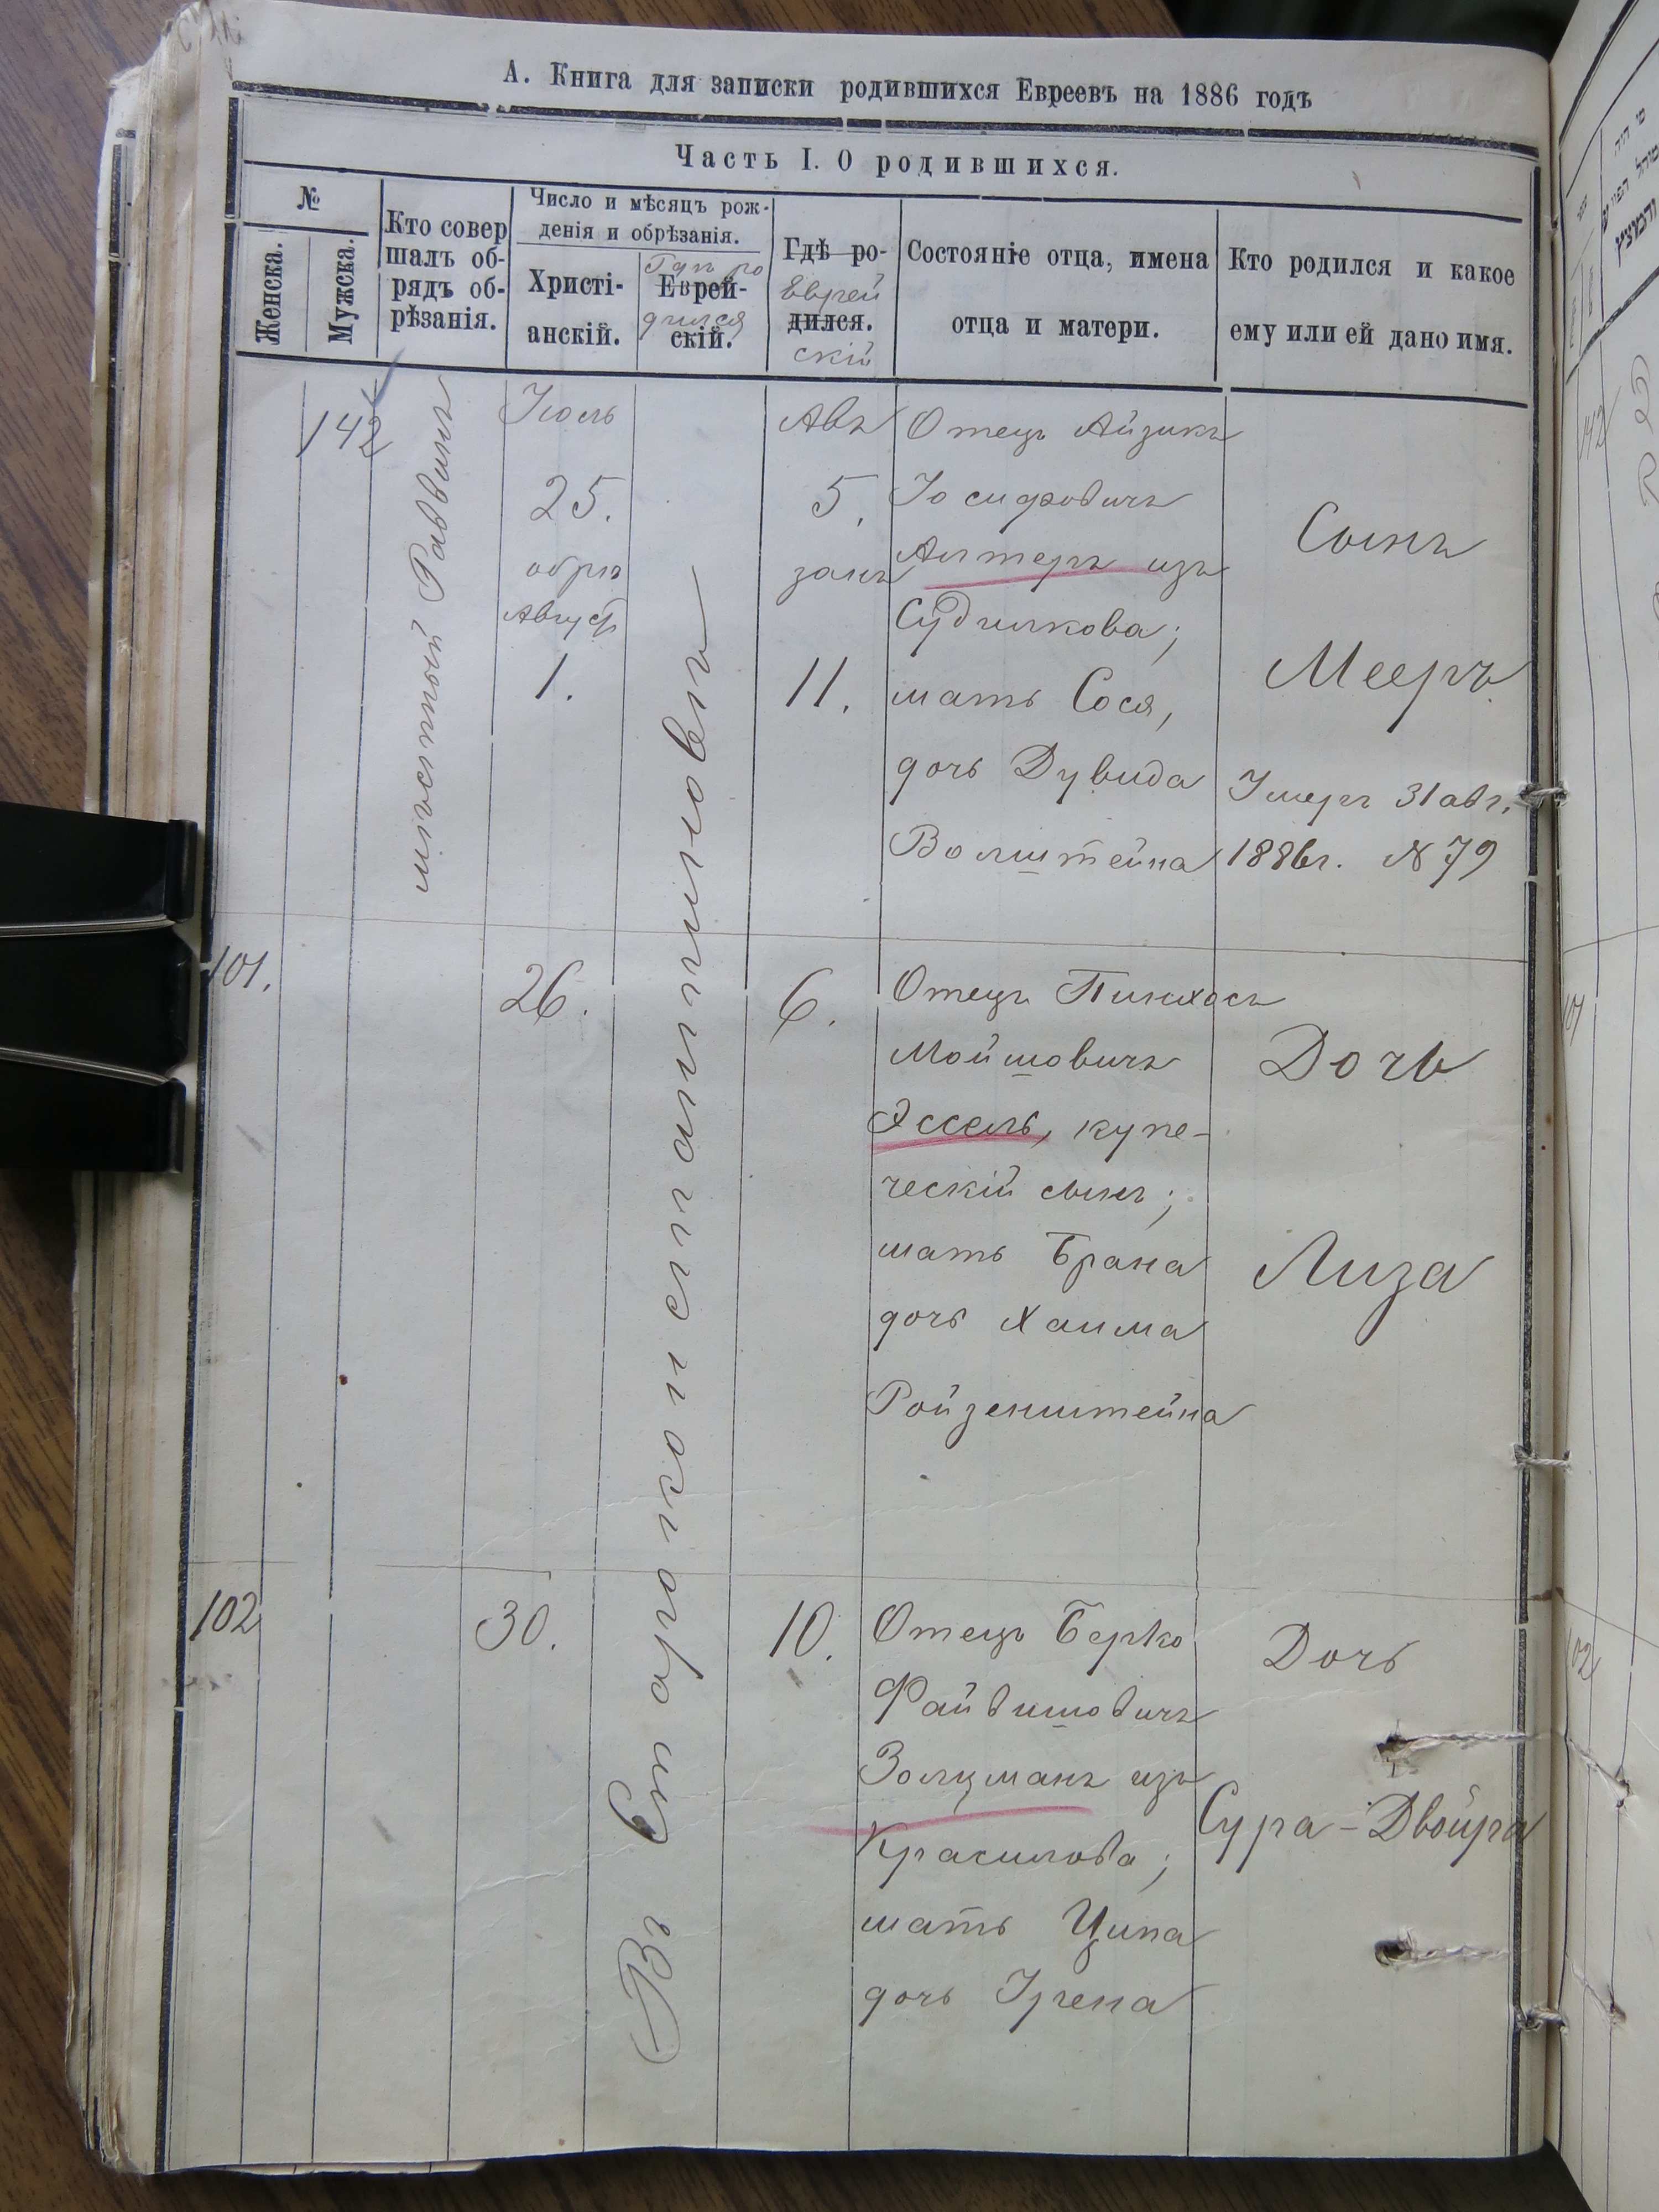 А. Книга для записки родившихся Евреевъ на 1886 годъ
Часть I. О родившихся.
№
Женска.
Мужска.
Кто совер
шалъ об-
рядъ об-
рѣзанія.
Число и мѣсяцъ рож-
денія и обрѣзанія.
Христі-
анскій.
Гдѣ ро
Еврей-
дился
скій.
Гдѣ ро-
Еврей
дился.
скій
Состояніе отца, имена
отца и матери.
Кто родился и какое
ему или ей дано имя.
142
мѣстный Раввинъ
Іюль
25.
обрѣ
Август
1.
Въ Староконстантиновѣ
Авъ
5.
занъ
11.
Отецъ Айзикъ
Іосифовичъ
Алтеръ изъ
Судилкова;
мать Сося,
дочь Дувида
Волштейна
Сынъ
Мееръ
Умеръ 31 авг.
1886г. N 79
101.
26.
6.
Отецъ Пинхасъ
Мойшовичъ
Эссель, купе-
ческій сынъ;
мать Брана
дочь Хаима
Ройзенштейна
Дочь
Лиза
102
30.
10.
Отецъ Берко
Файвишовичъ
Золцманъ изъ
Красилова;
мать Ципа
дочь Ургена
Дочь
Сура-Двойра
142
101
102